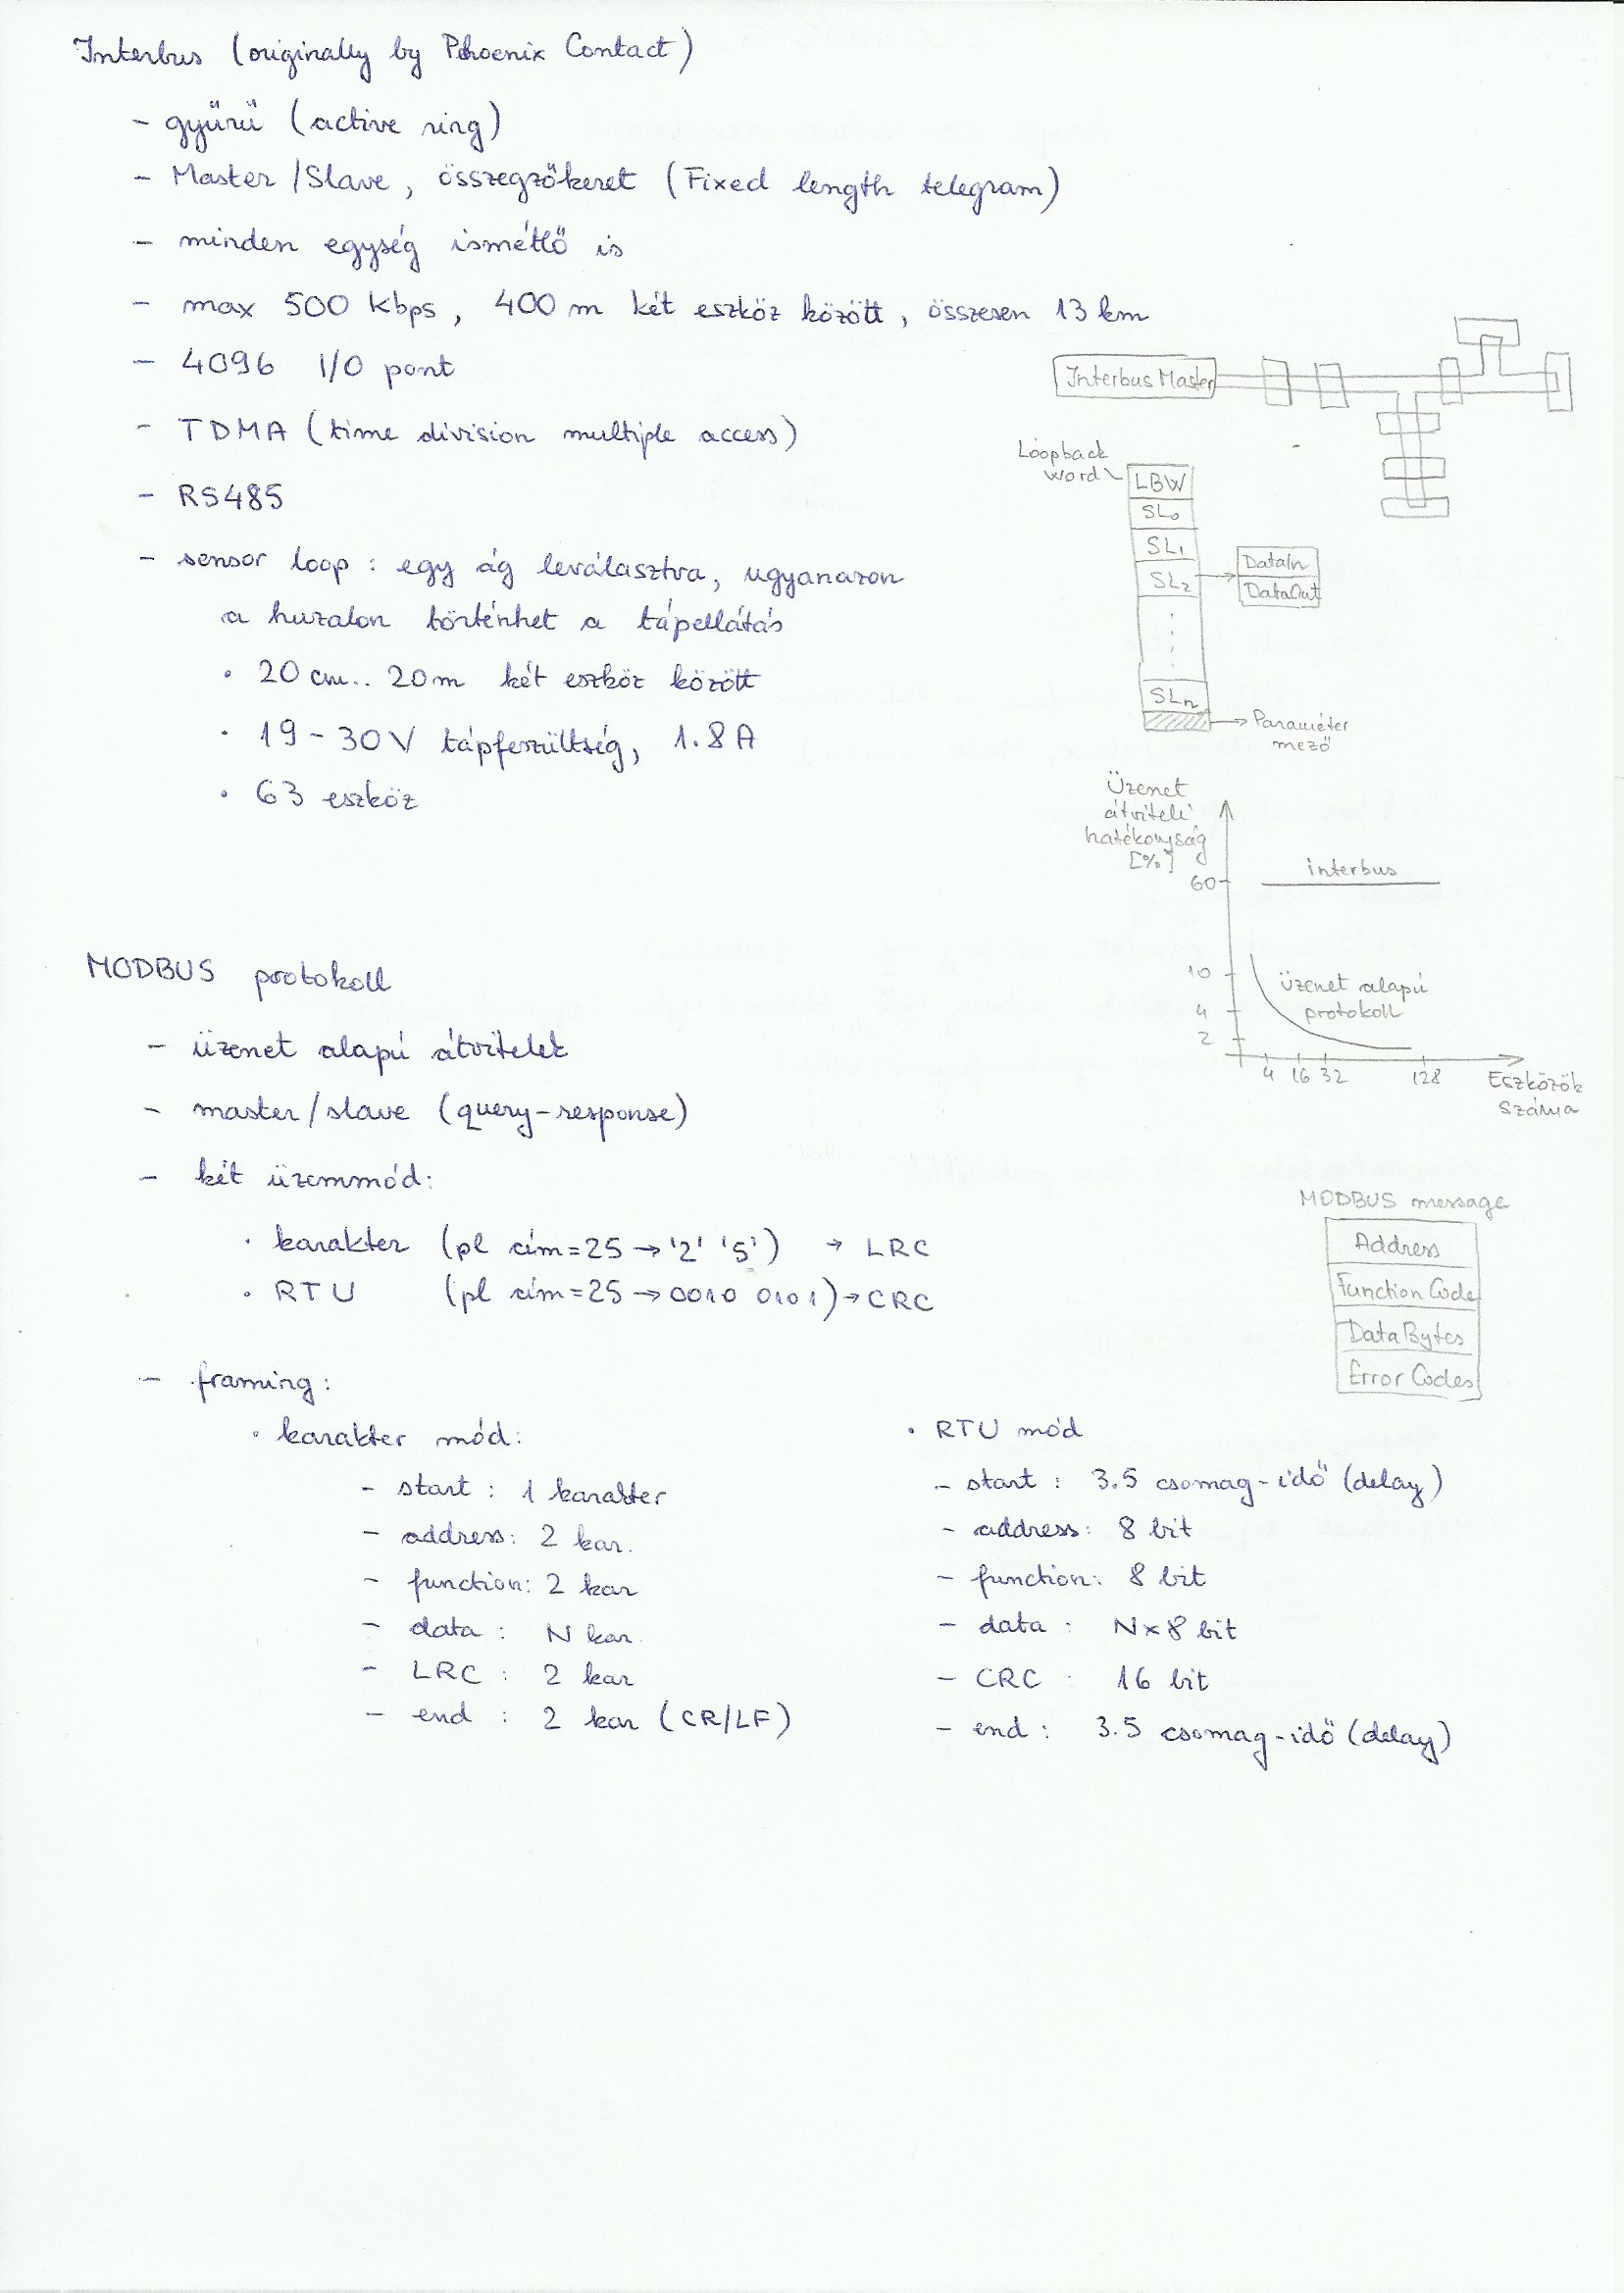 Interbus (originally by Phoenix Contact)
- gyűrű (active ring)
- Master/Slave, összegzőkeret (Fixed length telegram)
- minden egység ismétlő is
- max 500 kbps, 400 m két eszköz között, összesen 13 km
- 4096 I/O pont
- TDMA (time division multiple access)
- RS485
- sensor loop: egy ág leválasztva, ugyanazon
a huzalon történhet a tápellátás
• 20 cm.. 20m két eszköz között
• 19-30V tápfeszültség, 1.8A
• 63 eszköz
Interbus Master
Loopback
word
LBW
SL0
SL1
SL2
DataIn
DataOut
SLn
Paraméter
mező
Üzenet
átviteli
hatékonyság
[%]
60
interbus
10
4
2
üzenet alapú
protokoll
4 16 32 128
Eszközök
száma
MODBUS protokoll
- üzenet alapú átvitelek
- master/slave (query-response)
- két üzemmód:
• karakter (pl cím=25→'2' '5') → LRC
• RTU (pl cím=25→0010 0101)→CRC
MODBUS message
Address
Function Code
Data Bytes
Error Codes
- framing:
• karakter mód:
- start: 1 karakter
- address: 2 kar.
- function: 2 kar
- data: N kar.
- LRC: 2 kar
- end: 2 kar (CR/LF)
• RTU mód
- start: 3.5 csomag-idő (delay)
- address: 8 bit
- function: 8 bit
- data: N×8 bit
- CRC: 16 bit
- end: 3.5 csomag-idő (delay)